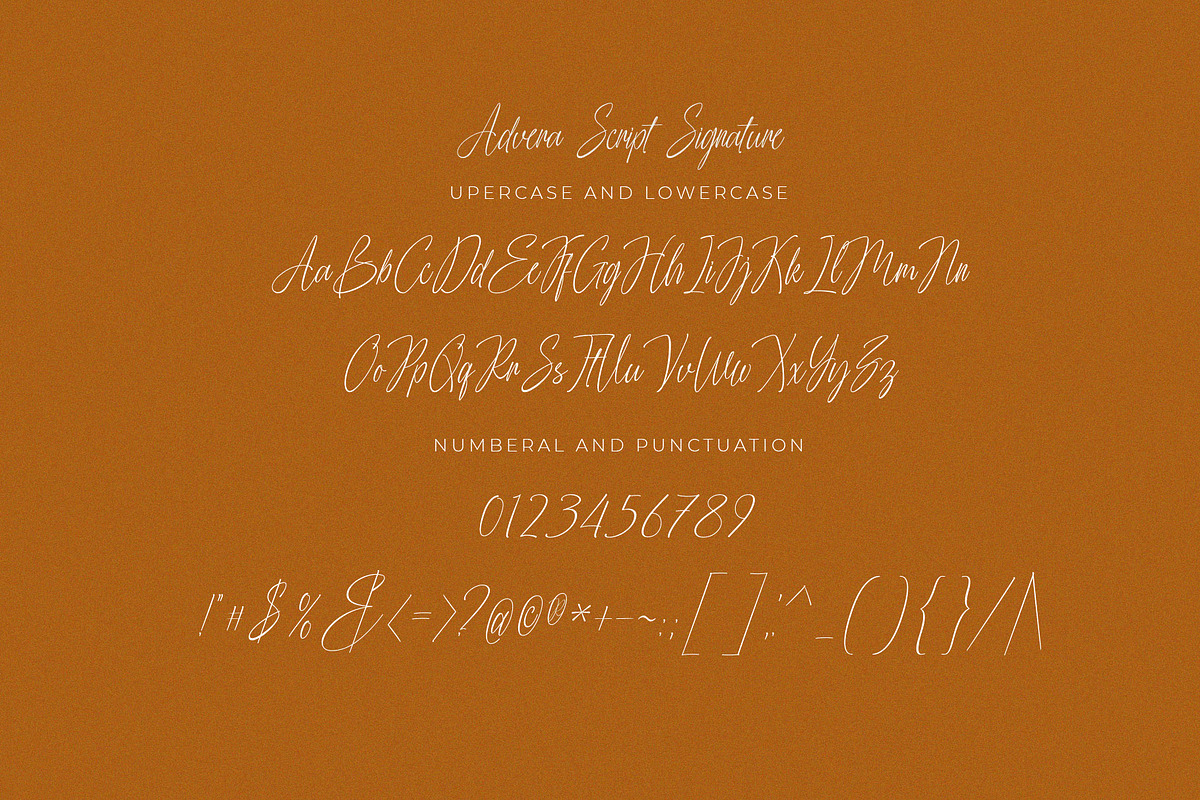 Advera Script Signature
UPERCASE AND LOWERCASE
AaBbCcDdEeFfGgHhIiJjKkLlMmNn
OoPpQqRrSsTtUuVvWwXxYyZz
NUMBERAL AND PUNCTUATION
0123456789
!"#$%&<=>?@©®*+–~:;[],,'^_(){}/\|